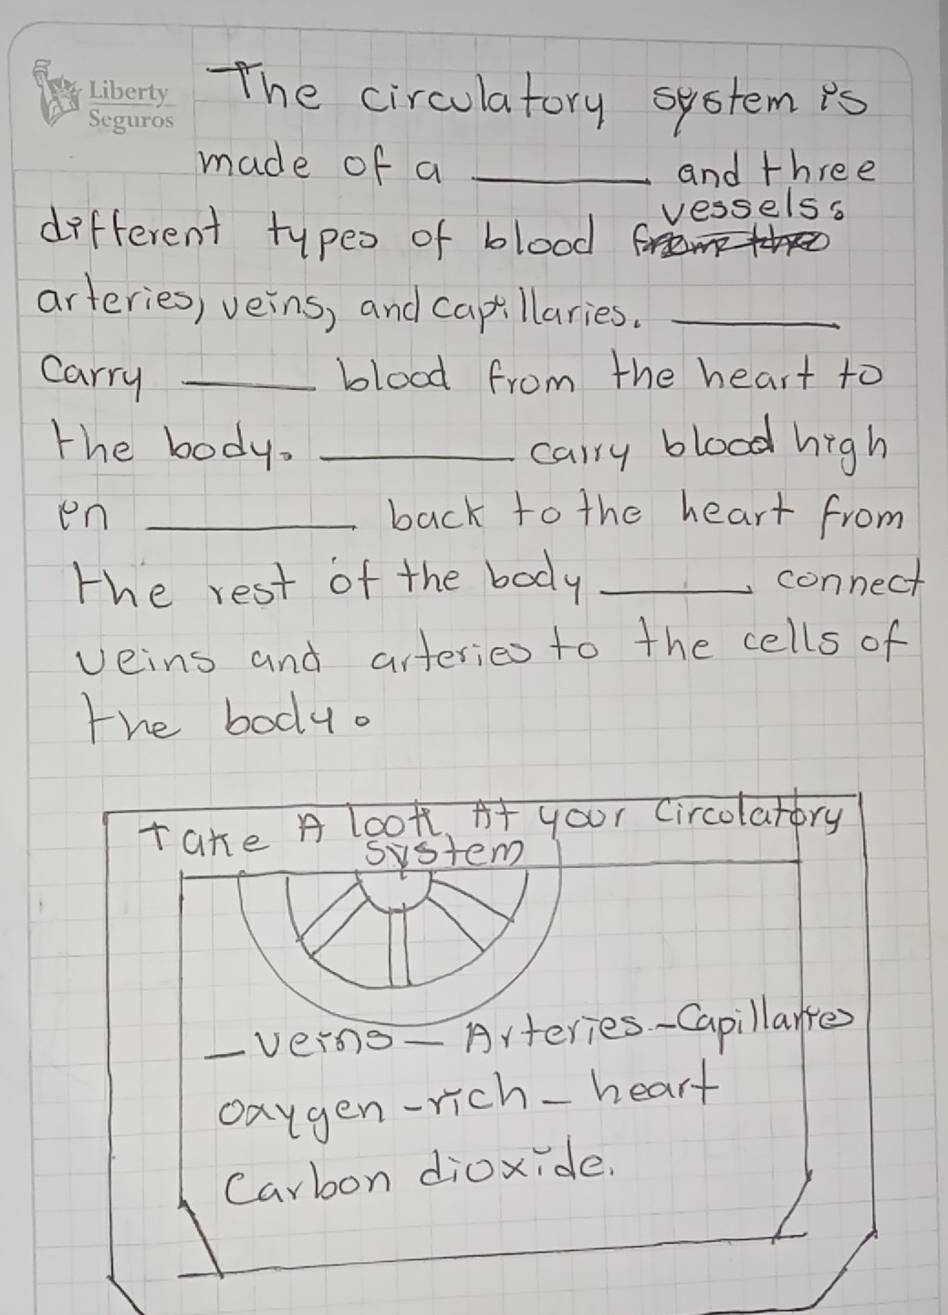 Liberty
Seguros
The circulatory system is
made of a ________ and three
different types of blood vessels:
arteries, veins, and capillaries. ________
Carry ______ blood from the heart to
the body. ________ carry blood high
en ________ back to the heart from
the rest of the body ______. connect
veins and arteries to the cells of
the body.
Take A look At your Circolatory
System
- Veins - Arteries - Capillaries
oxygen-rich - heart
Carbon dioxide.